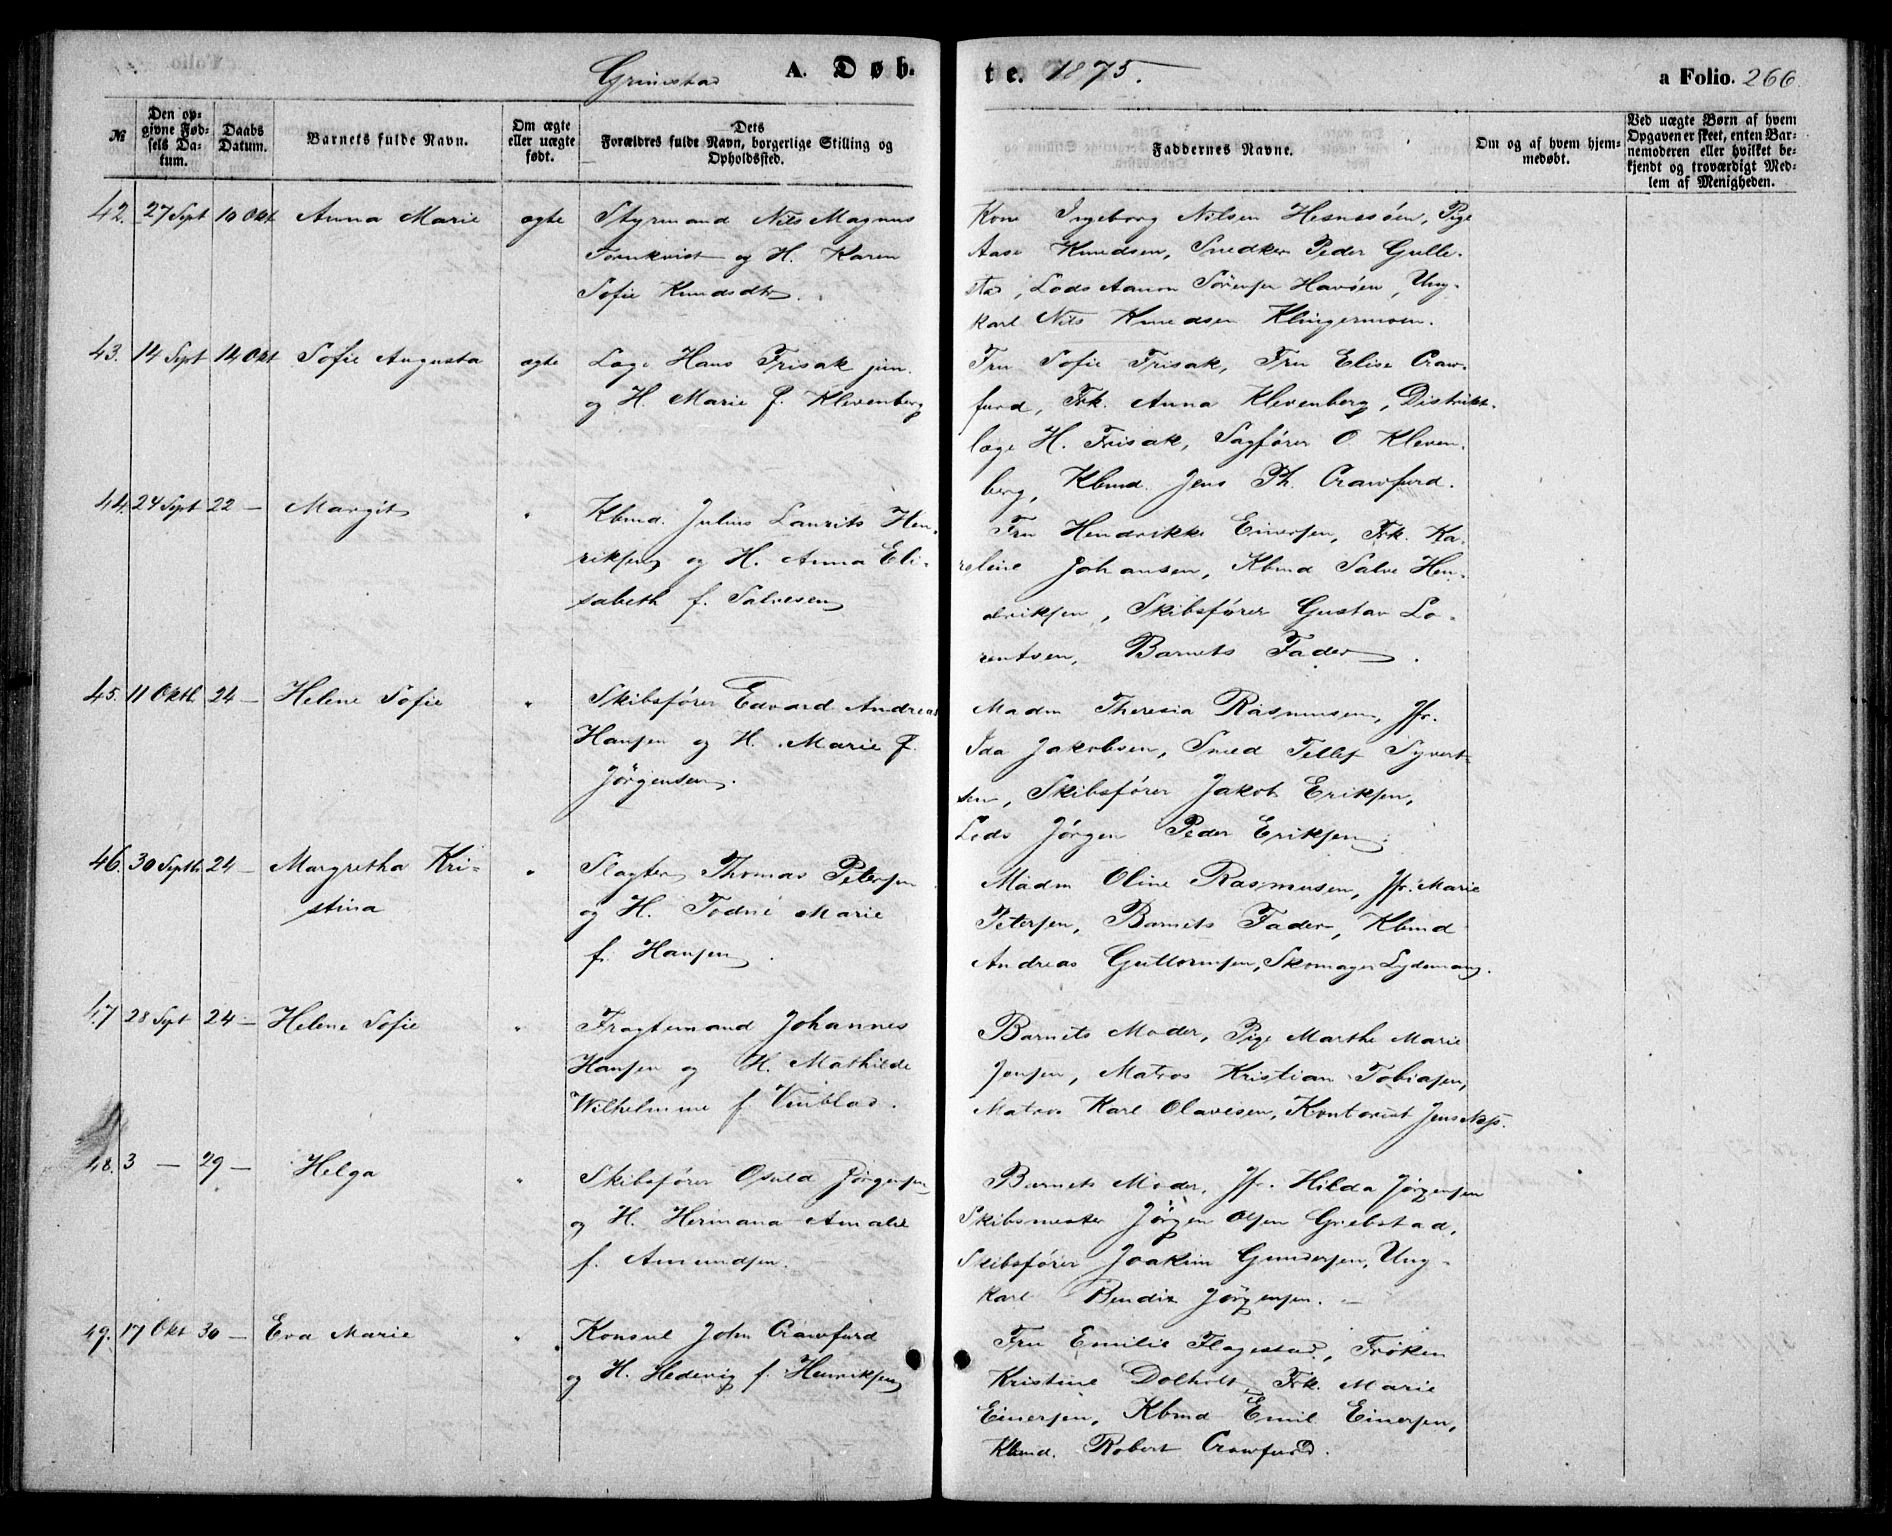 Grimstad A. Døb-
te. 1875. a Folio. 266
№
Den opgivne Fødsels Datum.
Daabs Datum.
Barnets fulde Navn.
Om ægte eller uægte født.
Dets Forældres fulde Navn, borgerlige Stilling og Opholdssted.
Faddernes Navne.
Om og af hvem hjemmedøbt.
Ved uægte Børn af hvem Opgaven er skeet, enten Barnemoderen eller hvilket bekjendt og troværdigt Medlem af Menigheden.
42. 27 Sept 10 Okt Anna Marie ægte Styrmand Nils Magnus
Tornkvist og H. Karen
Sofie Knudsdtr.
Kone Ingeborg Nilsen Hesnesøen, Pige
Aase Knudsen, Snedker Peder Gulle-
stad, Lods Aanon Sørensen Havøen, Ung-
karl Nils Knudsen Klingermoen.
43. 14 Sept 14 Okt Sofie Augusta ægte Læge Hans Frisak jun.
og H. Marie f. Klevenberg
Fru Sofie Frisak, Fru Elise Craw-
furd, Frk. Anna Klevenberg, Distrikt-
læge H. Frisak, Sagfører O Kleven-
berg, Kbmd. Jens Ph. Crawfurd.
44. 24 Sept 22 — Margit " Kbmd. Julius Laurits Hen-
riksen og H. Anna Eli-
sabeth f. Salvesen
Fru Hendrikke Einersen, Frk. Ka-
roline Johansen, Kbmd Salve Hen-
driksen, Skibsfører Gustav Lo-
rentsen, Barnets Fader.
45. 11 Oktb. 24 — Helene Sofie " Skibsfører Edvard Andreas
Hansen og H. Marie f.
Jørgensen.
Madm Theresia Rasmusen, Jfr.
Ida Jakobsen, Smed Tellef Syvert-
sen, Skibsfører Jakob Eriksen,
Lods Jørgen Peder Eriksen.
46. 30 Septb. 24 — Margretha Kri-
stina " Slagter Thomas Petersen
og H. Todne Marie
f. Hansen.
Madm Oline Rasmusen, Jfr. Marie
Petersen, Barnets Fader, Kbmd
Andreas Guttormsen, Skomager Lydemang.
47 28 Sept 24 — Helene Sofie " Fragtemand Johannes
Hansen og H. Mathilde
Wilhelmine f. Vinblad.
Barnets Moder, Pige Marthe Marie
Jensen, Matros Kristian Tobiasen,
Matros Karl Olavesen, Kontorist Jens
48. 3 — 29 — Helga " Skibsfører Osuld Jørgensen
og H. Hermana Amalie
f. Amundsen.
Barnets Moder, Jfr. Hilda Jørgensen
Skibsmester Jørgen Olsen Griebstad,
Skibsfører Joakim Gundersen, Ung-
karl Bendix Jørgensen. —
49. 17 Okt 30 — Eva Marie " Konsul John Crawfurd
og H. Hedevig f. Henriksen
Fru Emilie Flagestad, Frøken
Kristine Dolholt, Frk. Marie
Einersen, Kbmd Emil Einersen,
Kbmd. Robert Crawfurd.